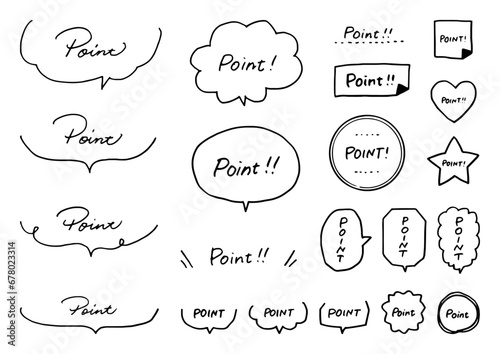 Point
Point!
Point!!
POINT!
Point!!
POINT!!
Point
Point!!
POINT!
POINT!
Point
Point!!
POINT
POINT
POINT
Point
POINT
POINT
POINT
Point
Point
Adobe Stock | #678023314